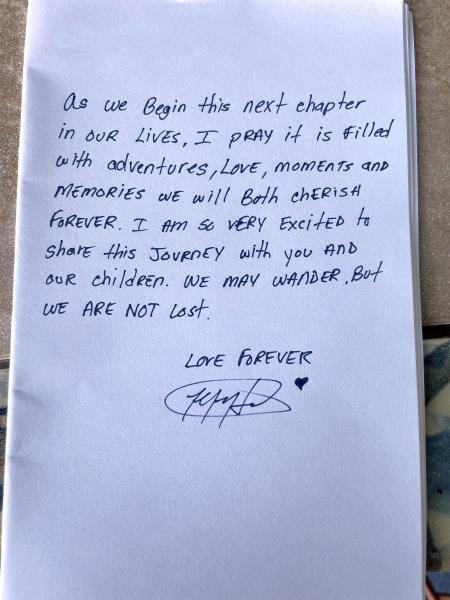 As we Begin this next chapter
in OUR LIVES, I PRAY it is Filled
with adventures, LOVE, MOMENTS and
MEMORIES WE will Both CHERISH
FOREVER. I AM SO VERY EXCITED to
SHARE this JOURNEY with you AND
OUR children. WE MAY WANDER, But
WE ARE NOT Lost.
LOVE FOREVER